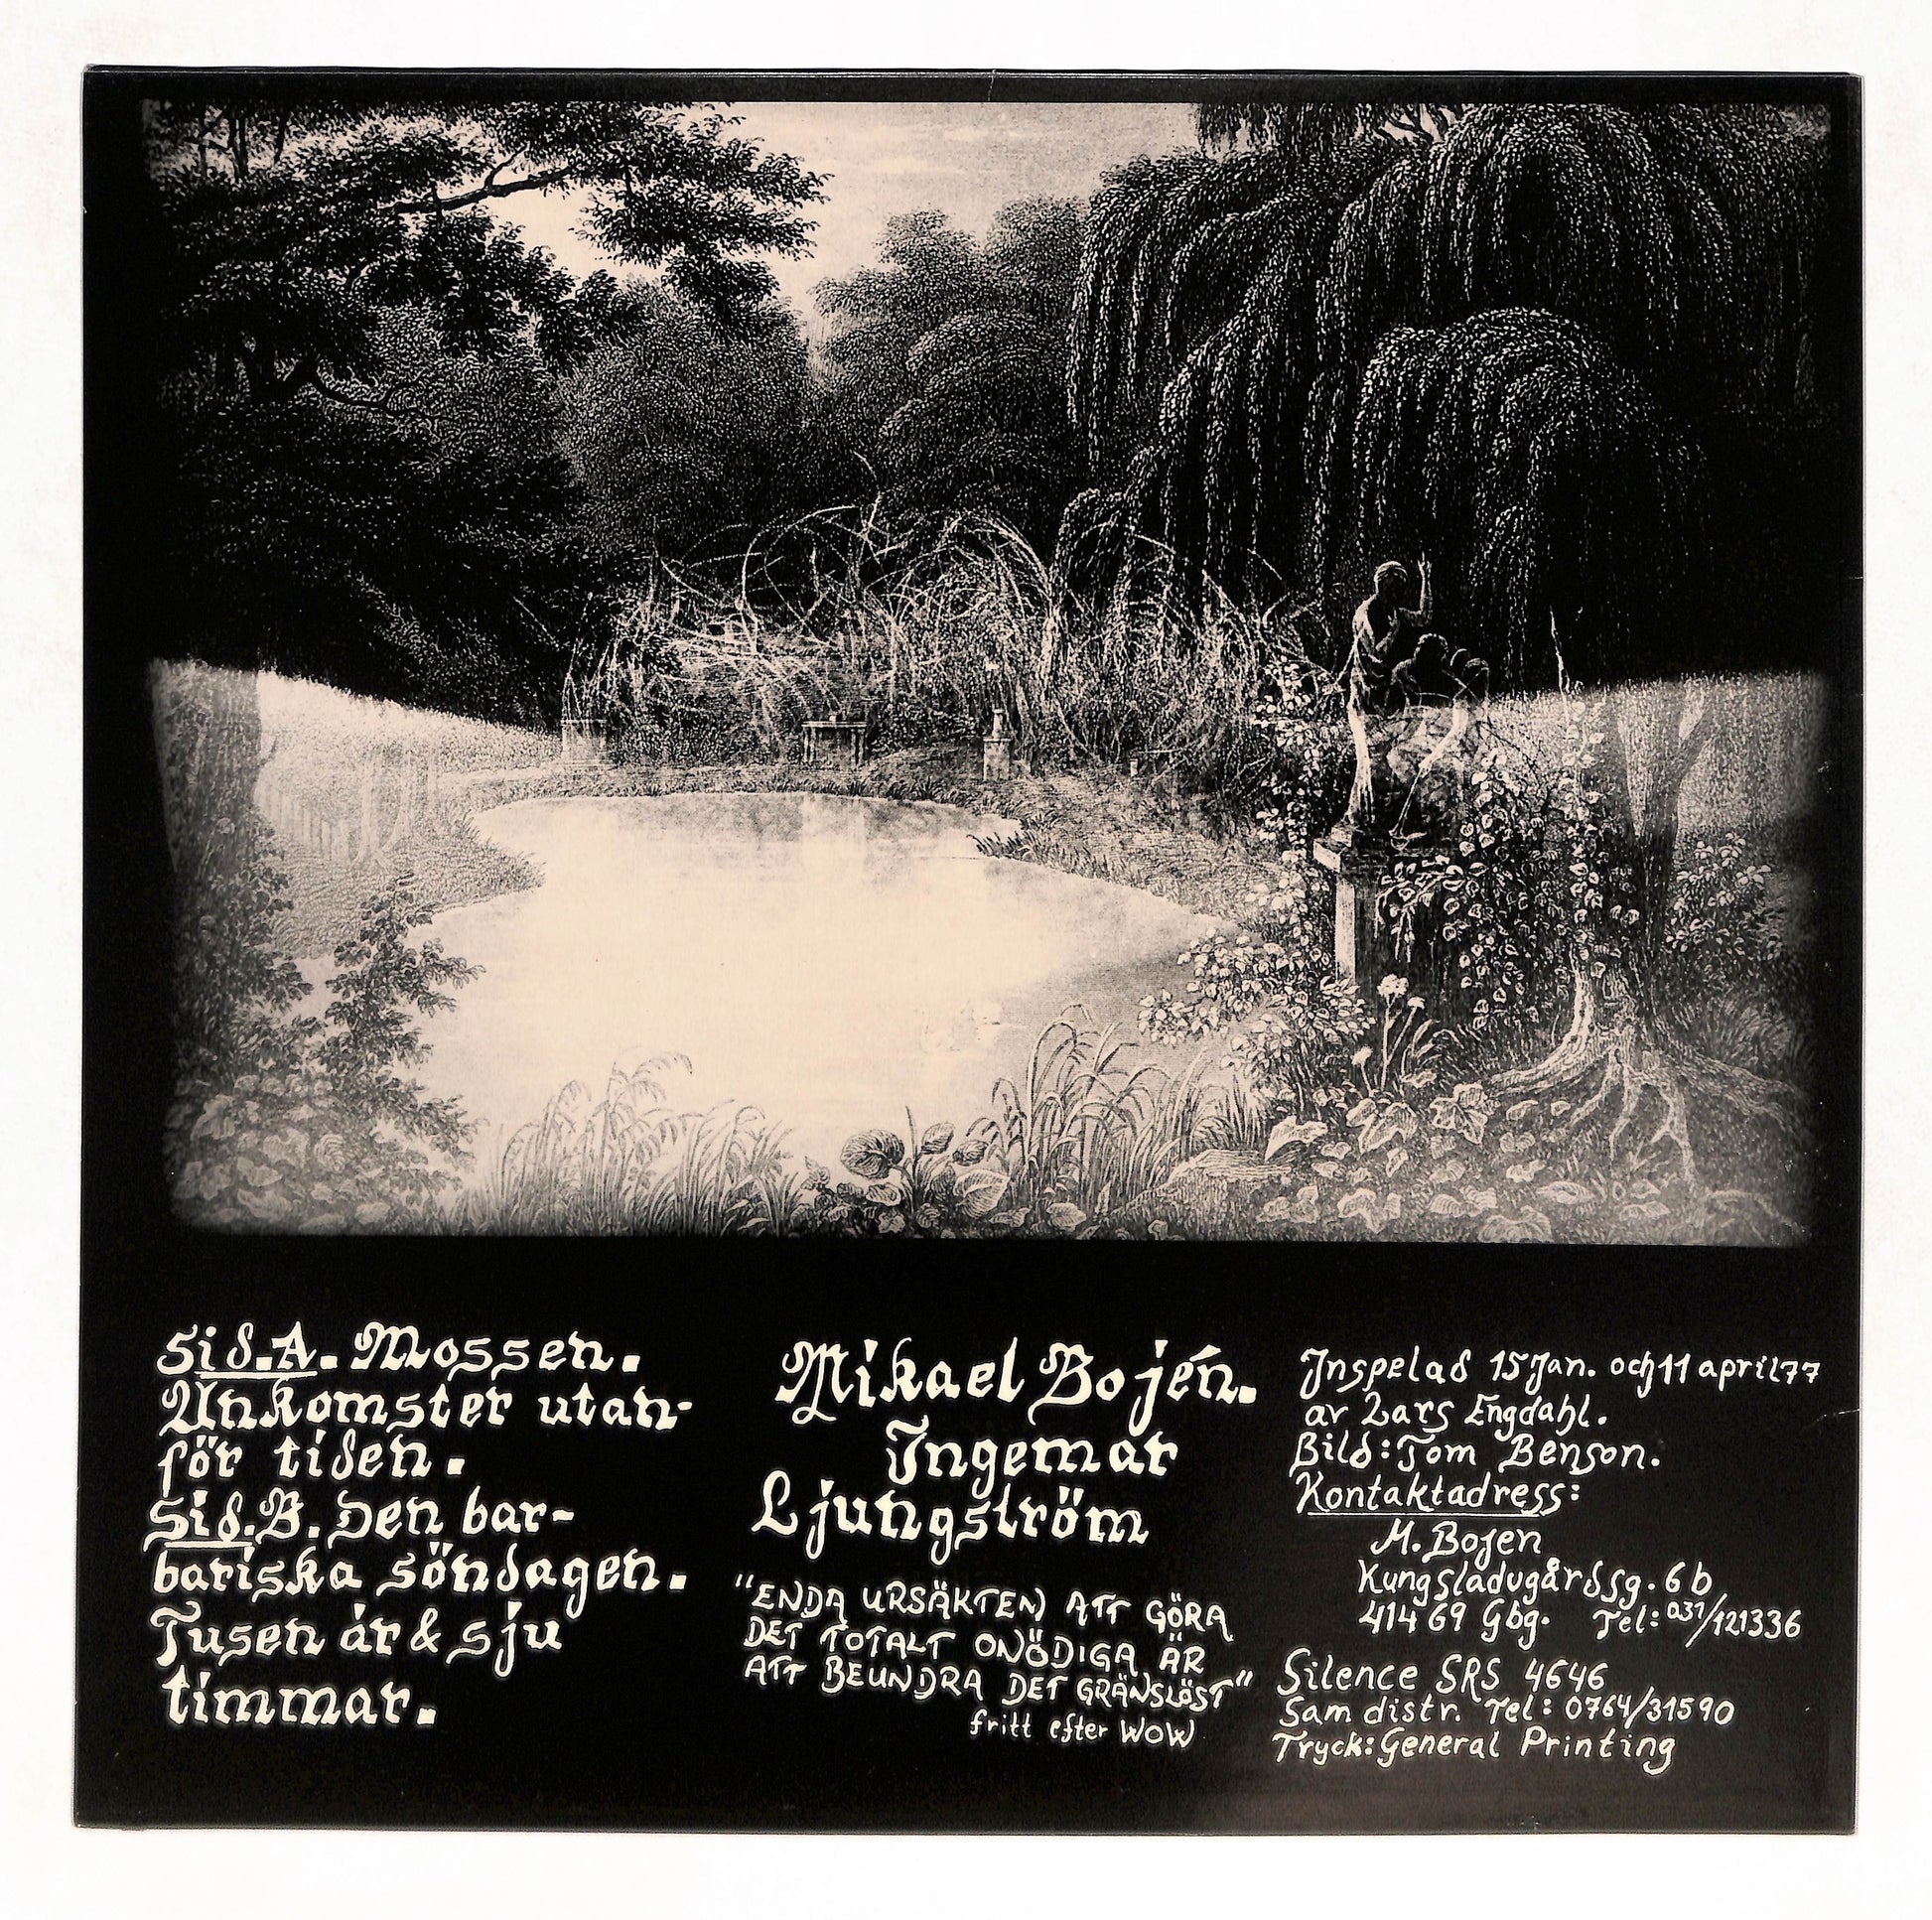 Sid.A. Mossen.
Ankomster utan-
för tiden.
Sid.B. Den bar-
bariska söndagen.
Tusen år & sju
timmar.
Mikael Bojén.
Ingemar
Ljungström
"ENDA URSÄKTEN ATT GÖRA
DET TOTALT ONÖDIGA ÄR
ATT BEUNDRA DET GRÄNSLÖST"
fritt efter WOW
Inspelad 15 Jan. och 11 april 77
av Lars Engdahl.
Bild: Tom Benson.
Kontaktadress:
M. Bojen
Kungsladugårdsg. 6b
414 69 Gbg. Tel: 031/121336
Silence SRS 4646
Sam distr. Tel: 0764/31590
Tryck: General Printing